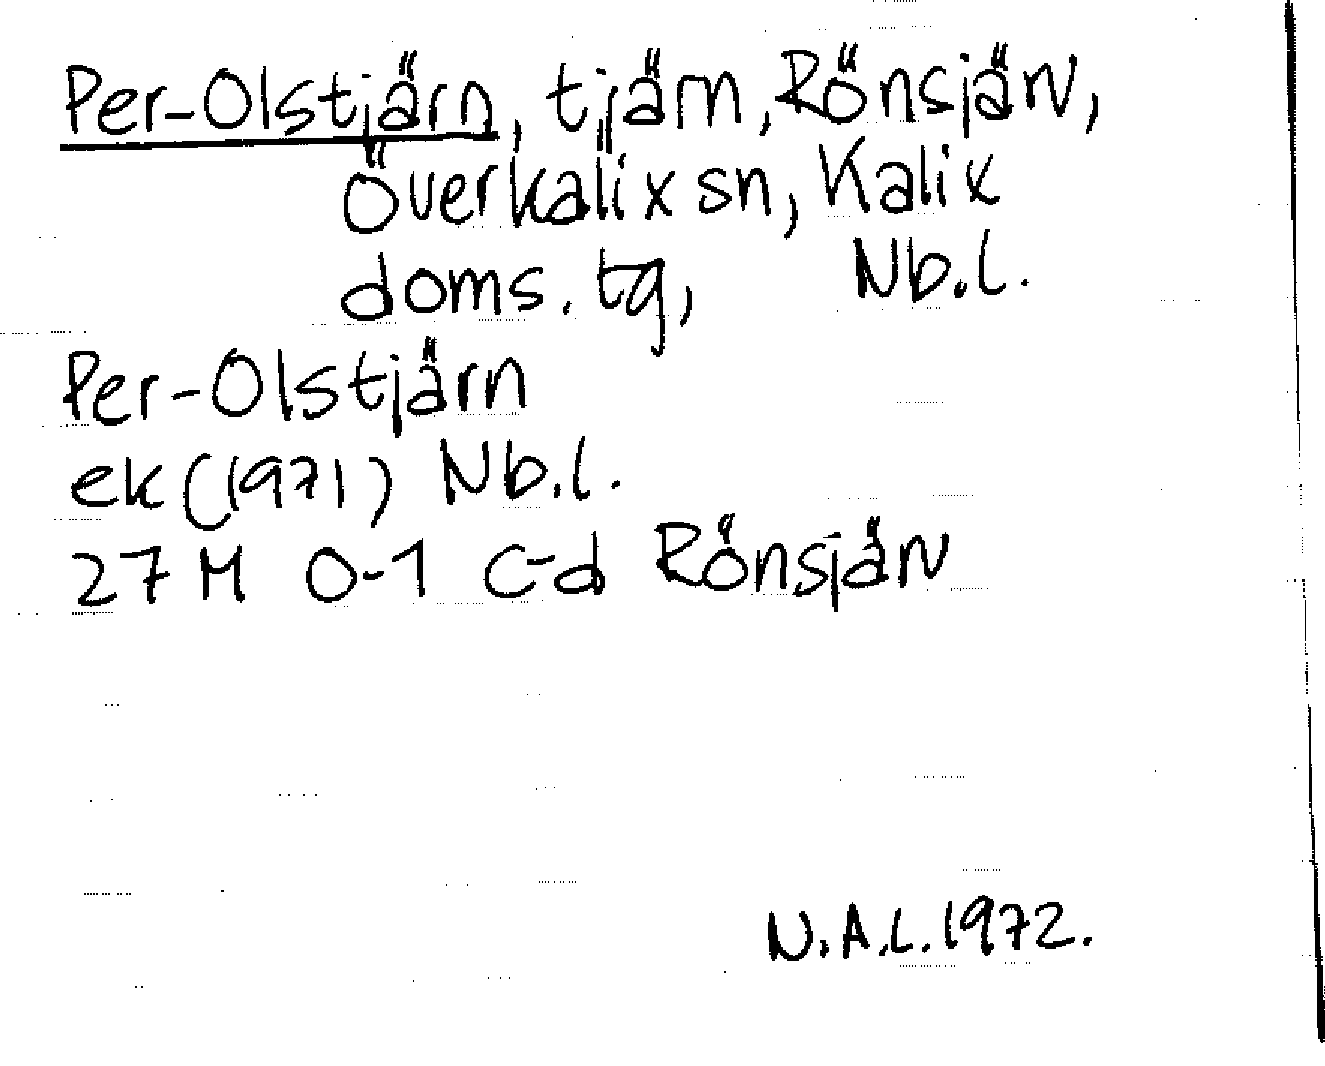 Per-Olstjärn, tjärn, Rönsjärv,
Överkalix sn, Kalix
doms. tg, Nb.l.
Per-Olstjärn
ek (1971) Nb.l.
27 M 0-1 c-d Rönsjärv
N.A.L. 1972.